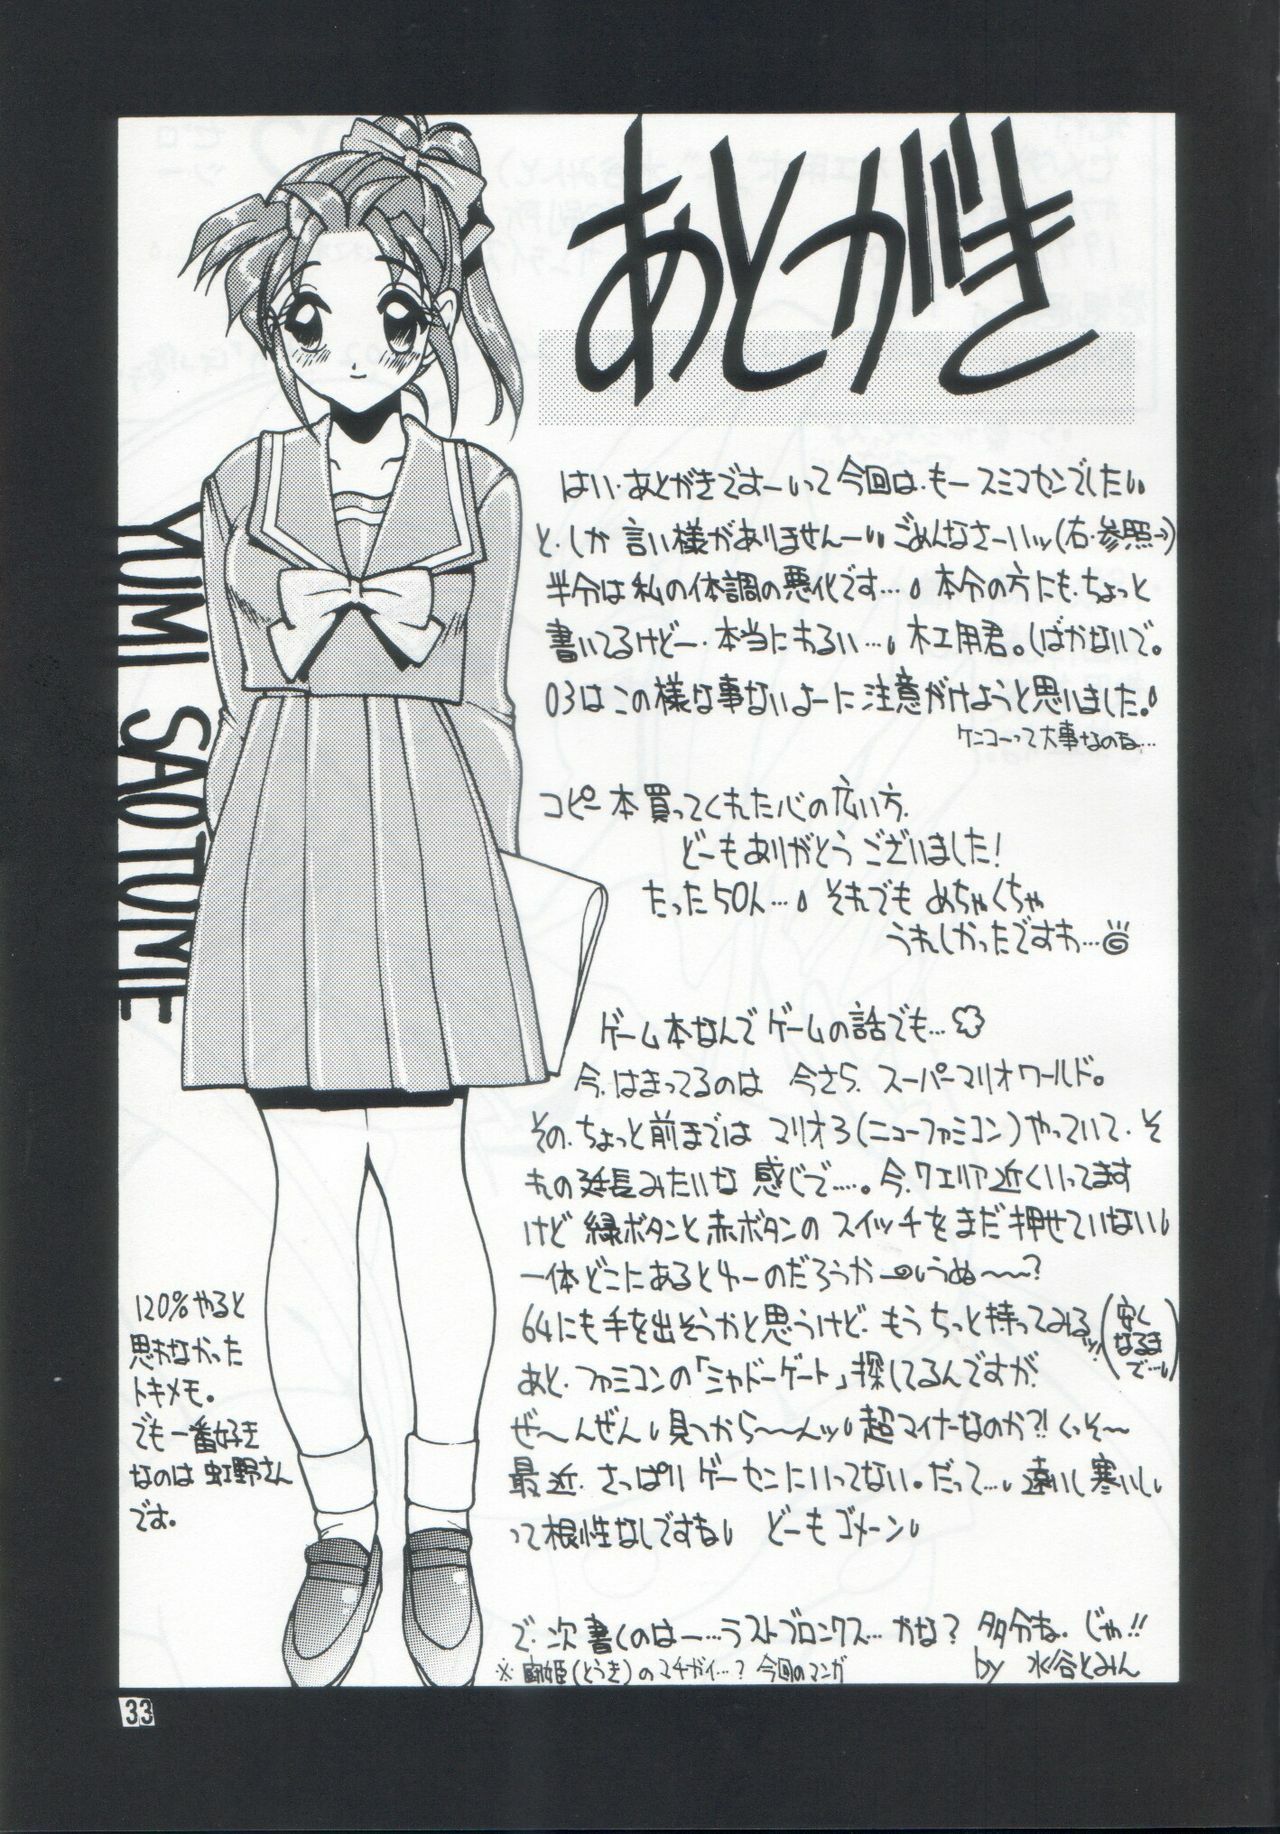 あとがき
はい・あとがきですーいって今回は・もースミマセンでした
と・しか言い様がありませんー ごめんなさーいッ(右・参照→)
半分は私の体調の悪化です… 本分の方にも・ちょっと
書いてるけどー・本当にわるい… 木工用君。しばかないで。
03はこの様な事ないよーに注意がけようと思いました。
ケンコーって大事なのね…
コピー本買ってくれた心の広い方、
どーもありがとうございました!
たった50人… それでもめちゃくちゃ
うれしかったですわ…
ゲーム本なんでゲームの話でも…
今、はまってるのは 今さら、スーパーマリオワールド。
その、ちょっと前まではマリオ3(ニューファミコン)やっていて、そ
れの延長みたいな感じで……。今、9エリア近くいってます
けど 緑ボタンと赤ボタンのスイッチをまだ押せていない
一体どこにあるとゆーのだろうかー うぬ〜〜?
64にも手を出そうかと思うけど、もうちっと待ってみるッ!(安くなるまで…)
あと、ファミコンの「シャドーゲート」探してるんですが、
ぜ〜んぜん 見つから〜〜んッ 超マイナーなのか?! くっそ〜
最近、さっぱりゲーセンにいってない。だって… 遠いし寒いし
って根性なしですね どーもゴメーン
で、次書くのはー…ラストブロンクス…かな? 多分ね、じゃ!!
※ 姫(とうき)のマチガイ…? 今回のマンガ
by 水谷とみん
YUMI SAOTOME
120%やると
思わなかった
トキメモ。
でも一番好き
なのは虹野さん
です。
33